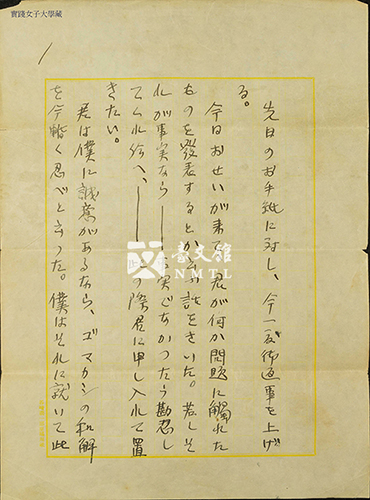 實踐女子大學藏
先日のお手紙に対し、今一度御返事を上げ
る。
今日おせいが来て、君が何か問題に觸れた
ものを發表するとか云ふ話をきいた。若しそ
れが事実なら――事実でなかつたら勘忍し
てくれ給へ、――この際君に申し入れて置
きたい。
君は僕に誠意があるなら、ゴマカシの和解
を今暫く忍べと云つた。僕はそれに就いて此
臺文館
NMTL